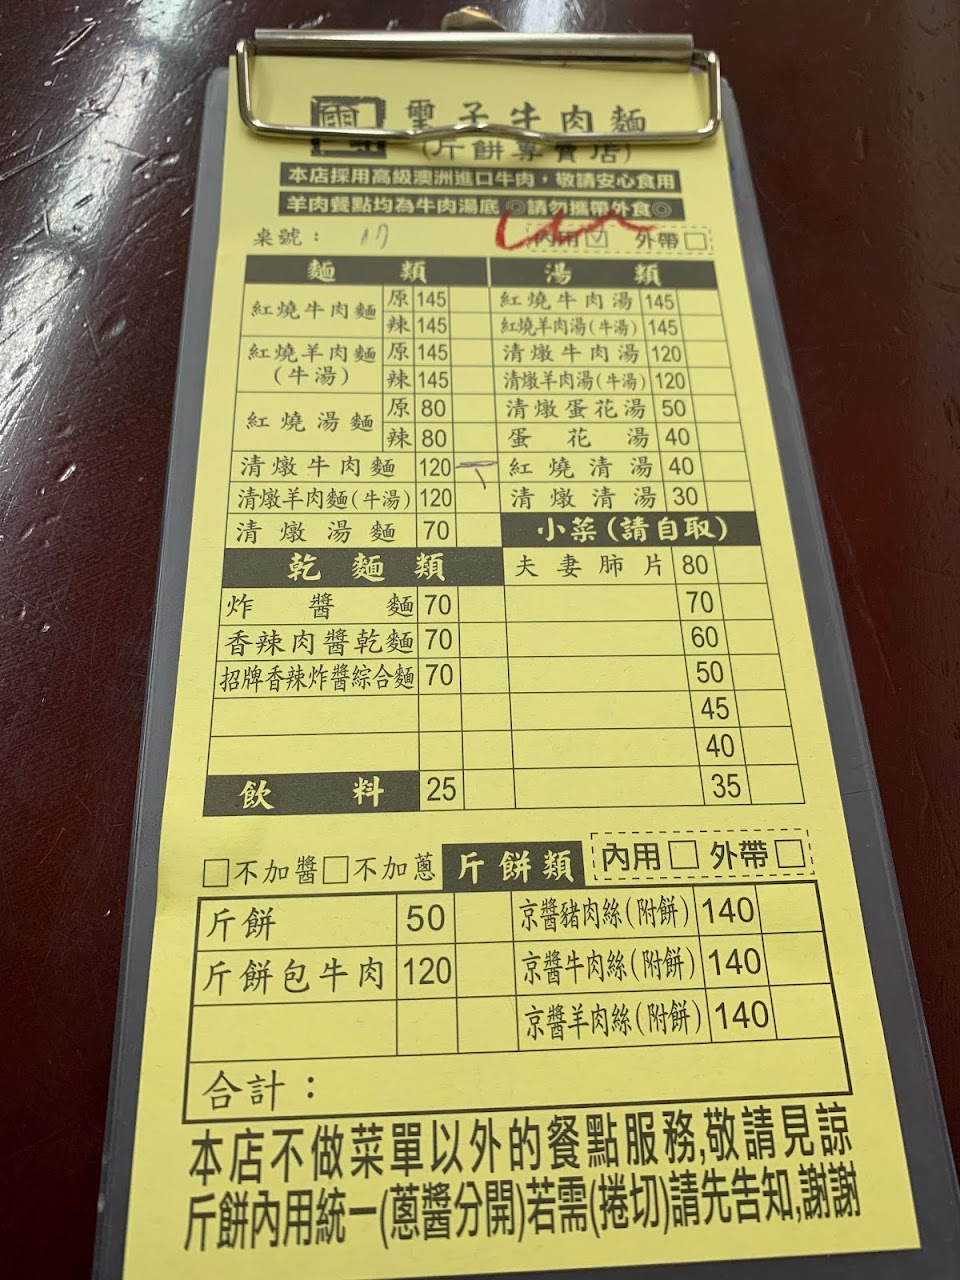 子牛肉麵
(斤餅專賣店)
本店採用高級澳洲進口牛肉，敬請安心食用
羊肉餐點均為牛肉湯底 ◎請勿攜帶外食◎
桌號： 內用☑ 外帶□
麵類 湯類
紅燒牛肉麵 原 145 紅燒牛肉湯 145
辣 145 紅燒羊肉湯(牛湯) 145
紅燒羊肉麵(牛湯) 原 145 清燉牛肉湯 120
辣 145 清燉羊肉湯(牛湯) 120
紅燒湯麵 原 80 清燉蛋花湯 50
辣 80 蛋花湯 40
清燉牛肉麵 120 紅燒清湯 40
清燉羊肉麵(牛湯) 120 清燉清湯 30
清燉湯麵 70 小菜(請自取)
乾麵類 夫妻肺片 80
炸醬麵 70 70
香辣肉醬乾麵 70 60
招牌香辣炸醬綜合麵 70 50
45
40
飲料 25 35
□不加醬□不加蔥 斤餅類 內用□ 外帶□
斤餅 50 京醬豬肉絲(附餅) 140
斤餅包牛肉 120 京醬牛肉絲(附餅) 140
京醬羊肉絲(附餅) 140
合計：
本店不做菜單以外的餐點服務,敬請見諒
斤餅內用統一(蔥醬分開)若需(捲切)請先告知,謝謝